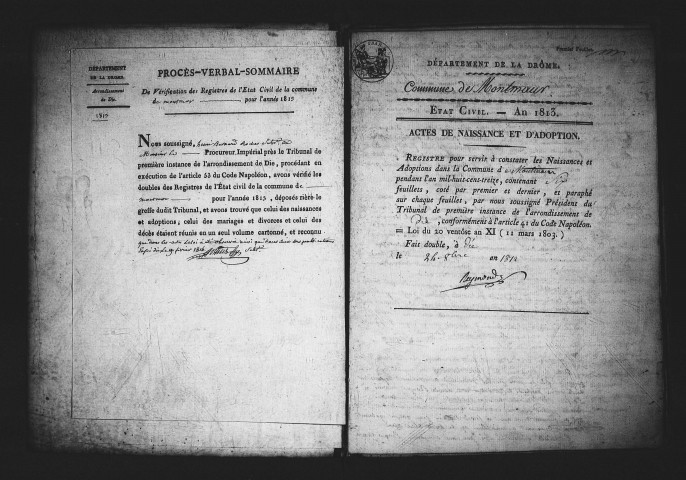 DÉPARTEMENT
DE LA DROME.
Arrondissement
de Die.
1813
PROCÈS-VERBAL-SOMMAIRE
De Vérification des Registres de l'Etat Civil de la commune
de montmor pour l'année 1813
Nous soussigné,
Procureur Impérial près le Tribunal de
première instance de l'arrondissement de Die, procédant en
exécution de l'article 53 du Code Napoléon, avons vérifié les
doubles des Registres de l'État civil de la commune de
montmor pour l'année 1813, déposés rière le
greffe dudit Tribunal, et avons trouvé que celui des naissances
et adoptions; celui des mariages et divorces et celui des
décès étaient réunis en un seul volume cartonné, et reconnu
Premier Feuillet.
DÉPARTEMENT DE LA DRÔME.
Commune de Montmaur
ETAT CIVIL. — AN 1813.
ACTES DE NAISSANCE ET D'ADOPTION.
REGISTRE pour servir à constater les Naissances et
Adoptions dans la Commune de Montmaur
pendant l'an mil-huit-cens-treize, contenant
feuillets, coté par premier et dernier, et paraphé
sur chaque feuillet, par nous soussigné Président du
Tribunal de première instance de l'arrondissement de
Die, conformément à l'article 41 du Code Napoléon.
= Loi du 20 ventôse an XI (11 mars 1803.)
Fait double, à Die
le 24 8bre an 1812
Reymond